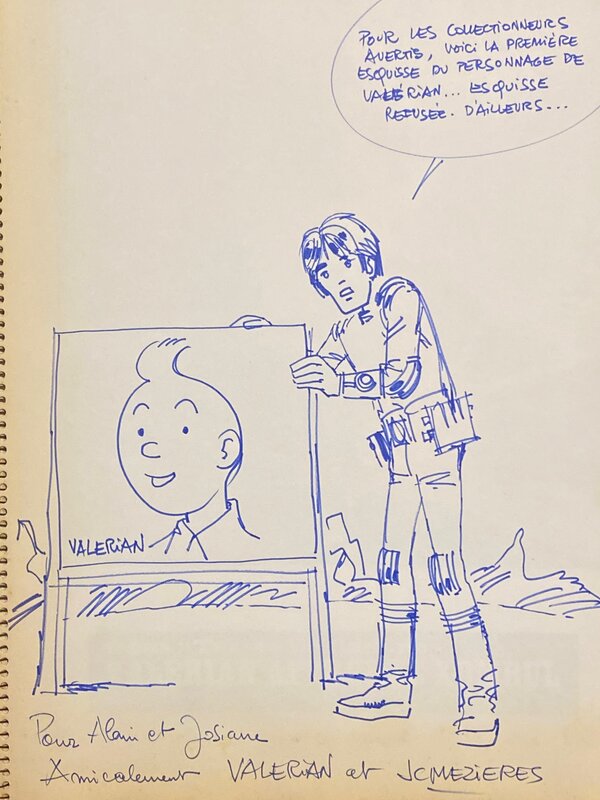 POUR LES COLLECTIONNEURS
AVERTIS, VOICI LA PREMIÈRE
ESQUISSE DU PERSONNAGE DE
VALÉRIAN... ESQUISSE
REFUSÉE. D'AILLEURS...
VALERIAN
Pour Alain et Josiane
Amicalement VALERIAN et JCMEZIERES